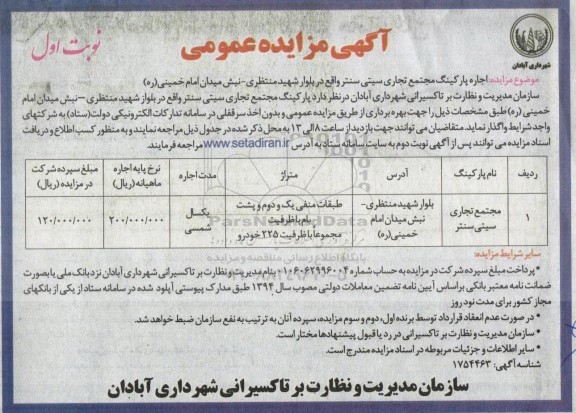 شهرداری آبادان
آگهی مزایده عمومی
نوبت اول
موضوع مزایده: اجاره پارکینگ مجتمع تجاری سیتی سنتر واقع در بلوار شهید منتظری-نبش میدان امام خمینی(ره)
سازمان مدیریت و نظارت بر تاکسیرانی شهرداری آبادان در نظر دارد پارکینگ مجتمع تجاری سیتی سنتر واقع در بلوار شهید منتظری –نبش میدان امام
خمینی (ره) طبق مشخصات ذیل را جهت بهره برداری از طریق مزایده عمومی و بدون اخذ سرقفلی در سامانه تدارکات الکترونیکی دولت(ستاد) به شرکتهای
واجد شرایط واگذار نماید. متقاضیان می توانند جهت بازدید از ساعت ۸ الی ۱۳ به محل ذکر شده در جدول ذیل مراجعه نمایند و به منظور کسب اطلاع و دریافت
اسناد مزایده می توانند پس از آگهی نوبت دوم به سایت سامانه ستاد به آدرس www.setadiran.ir مراجعه فرمایند.
ردیف | نام پارکینگ | آدرس | متراژ | مدت اجاره | نرخ پایه اجاره ماهیانه (ریال) | مبلغ سپرده شرکت در مزایده (ریال)
۱ | مجتمع تجاری سیتی سنتر | بلوار شهید منتظری-نبش میدان امام خمینی(ره) | طبقات منفی یک و دوم و پشت بام با ظرفیت مجموعا با ظرفیت ۲۲۵ خودرو | یکسال شمسی | ۲۰۰/۰۰۰/۰۰۰ | ۱۲۰/۰۰۰/۰۰۰
ParsNamadData
پایگاه اطلاع رسانی مناقصه و مزایده
سایر شرایط مزایده:
• پرداخت مبلغ سپرده شرکت در مزایده به حساب شماره ۰۱۰۶۰۶۲۹۹۶۰۰۴ بنام مدیریت و نظارت بر تاکسیرانی شهرداری آبادان نزد بانک ملی یا بصورت
ضمانت نامه معتبر بانکی بر اساس آیین نامه تضمین معاملات دولتی مصوب سال ۱۳۹۴ طبق مدارک پیوستی آپلود شده در سامانه ستاد از یکی از بانکهای
مجاز کشور برای مدت نود روز
• در صورت عدم انعقاد قرارداد توسط برنده اول، دوم و سوم مزایده، سپرده آنان به ترتیب به نفع سازمان ضبط خواهد شد.
• سازمان مدیریت و نظارت بر تاکسیرانی در رد یا قبول پیشنهادها مختار است.
• سایر اطلاعات و جزئیات مربوطه در اسناد مزایده مندرج است.
شناسه آگهی: ۱۷۵۴۴۶۳
سازمان مدیریت و نظارت بر تاکسیرانی شهرداری آبادان